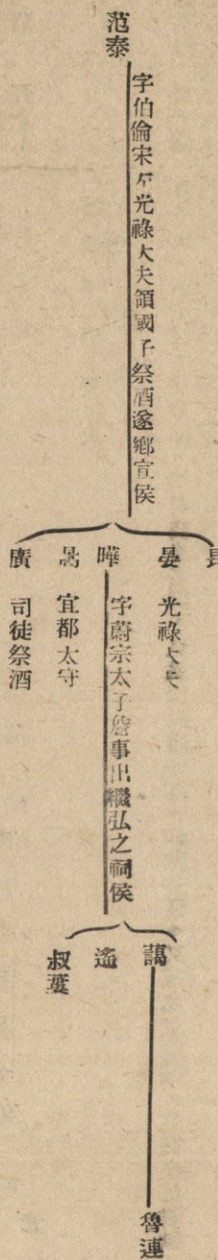 范泰
字伯倫宋 光祿大夫領國子祭酒遂鄉宣侯
晏 光祿大夫
曄
字蔚宗太子詹事出繼弘之祠侯
暠 宜都太守
廣 司徒祭酒
藹
遙
叔蔞
魯連